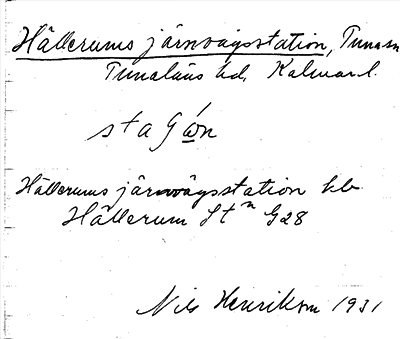 Hällerums järnvägsstation, Tuna sn
Tunaläns hd, Kalmar l.
stagón
Hällerums järnvägsstation kb
Hällerum Stn G28
Nils Henrikson 1931